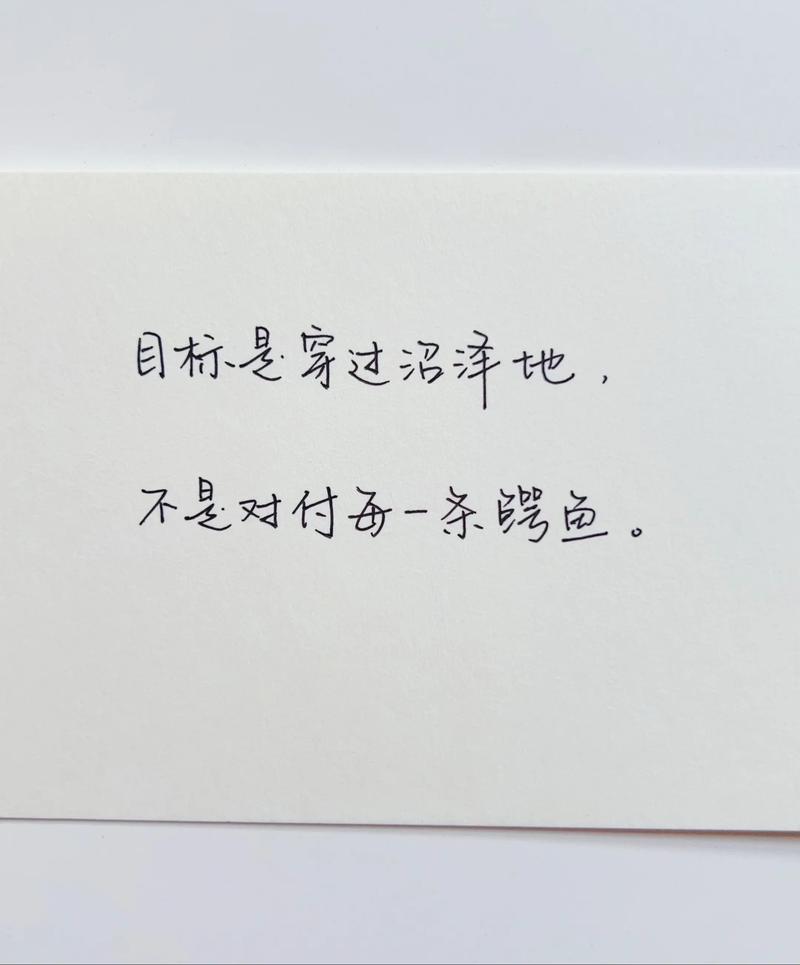 目标是穿过沼泽地，
不是对付每一条鳄鱼。